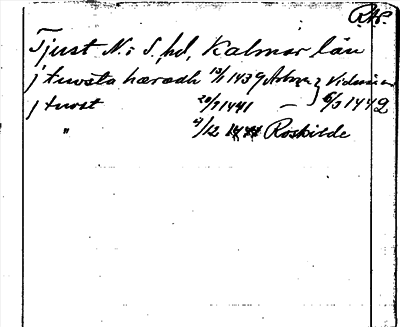 RAP.
Tjust N. o S. hd, Kalmar län
j tiwsta haradh 13/1 1439 Arboga } Vidimeras
j tiwst 20/7 1441 — } 6/3 1442
" 4/12 1444 Roskilde